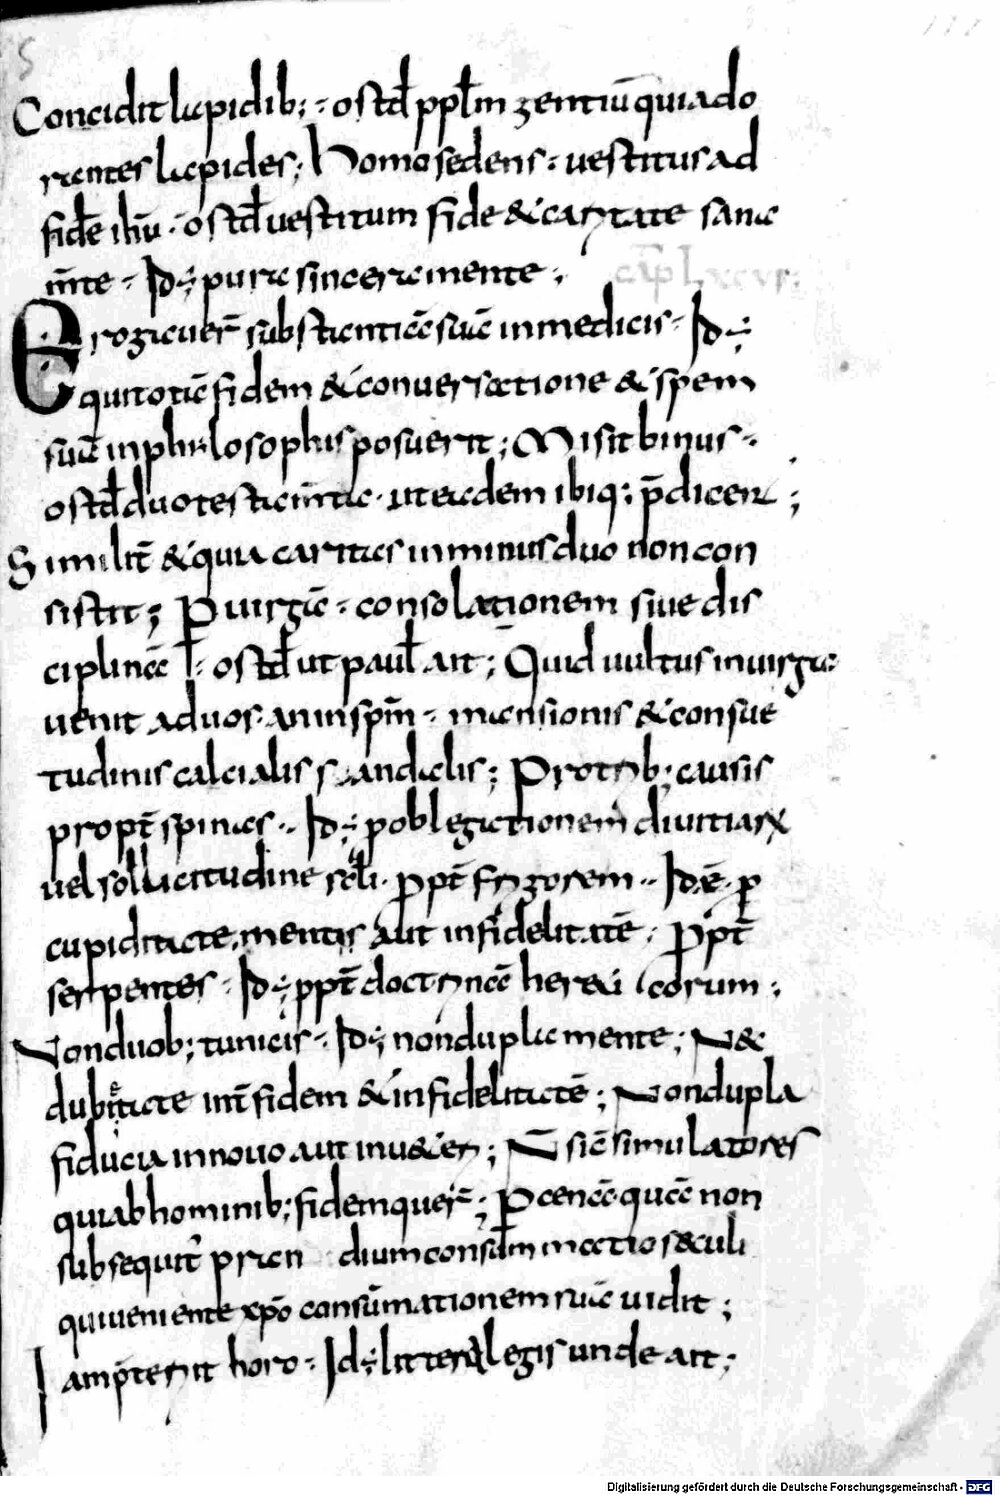 Concidit lapidib; ostđ ppl̄m gentiū quia ado
rantes lapides; Homo sedens vestitus ad
fidē ihū ostđ vestitum fide & caritate sana
m̄te Id ÷ pura sincera mente;
Erogauer̄ substantiā suā in medicis Id ÷
qui totā fidem & conuersatione & spem
suā in philosophis posuerit; Misit binus
ostđ duo testam̄ta ut eadem ibiq; p̄dicen ;
Similit̄ & quia caritas in minus duo non con
sistit; P uirgā consolationem siue dis
ciplinā ł ostđ ut paul̄ ait; Quid uultus in uirga
uenit ad uos an in spm̄ mansionis & consue
tudinis calcialis sandalis; Pro trib; causis
propt̄ spinas Id ÷ p oblegationem diuitiarx
uel sollicitudine scli ppt̄ frigorem Id ē p
cupiditate mentis aut infidelitatē ppt̄
serpentes Id ÷ ppt̄ doctrinā hereticorum;
Non duob; tunicis Id ÷ non dupla mente; N&
dubitate int̄ fidem & infidelitatē; Non dupla
fiducia in nouo aut in u&eri; N̄ sic simulatores
qui ab hominib; fidem quer̄; Pcenā quā non
subsequit̄ pran dium consūm matio sæculi
qui ueniente xpō consūmationem suā uidit;
Iam p̄terit hora Id ÷ littera legis unde ait;
Digitalisierung gefördert durch die Deutsche Forschungsgemeinschaft - DFG